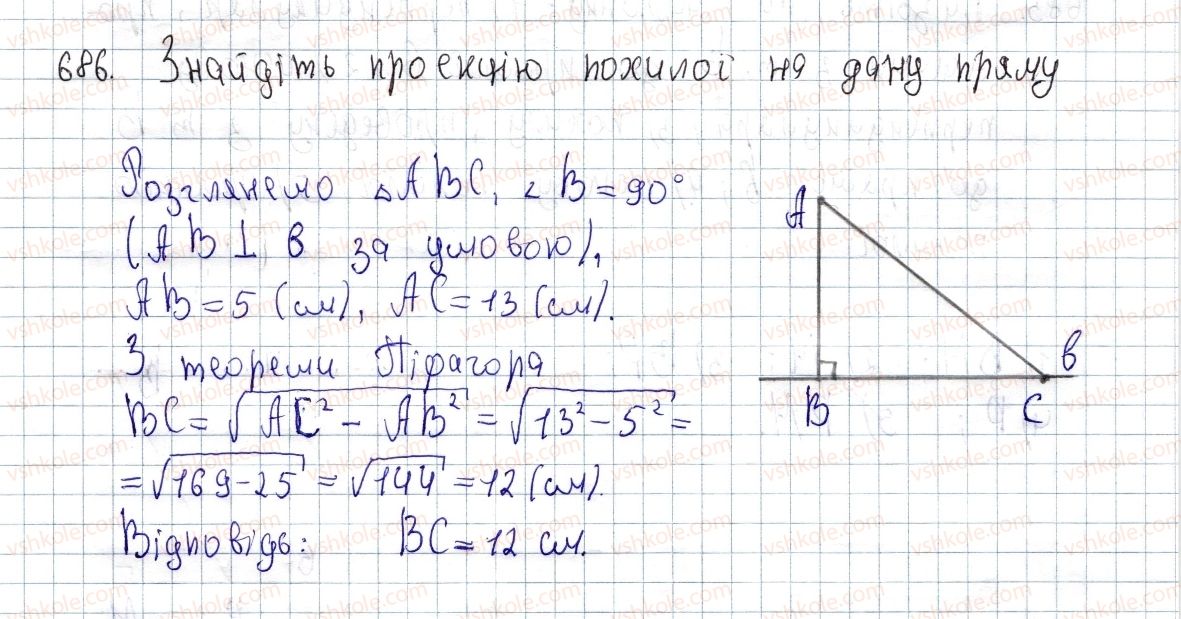 686. Знайдіть проекцію похилої на дану пряму
Розглянемо △ABC, ∠B = 90°
(AB ⊥ в за умовою),
AB = 5 (см), AC = 13 (см).
З теореми Піфагора
BC = √(AC² − AB²) = √(13² − 5²) =
= √(169 − 25) = √144 = 12 (см).
Відповідь: BC = 12 см.
A
в
B
C
vshkole.com